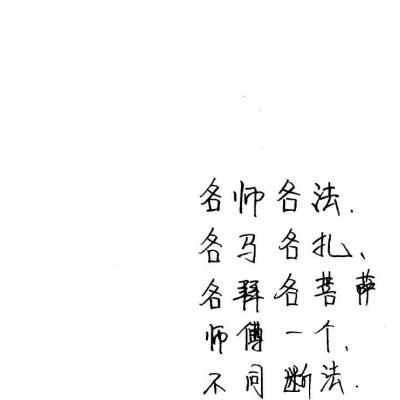 各师各法.
各马各扎、
各拜各菩萨
师傅一个,
不同断法.